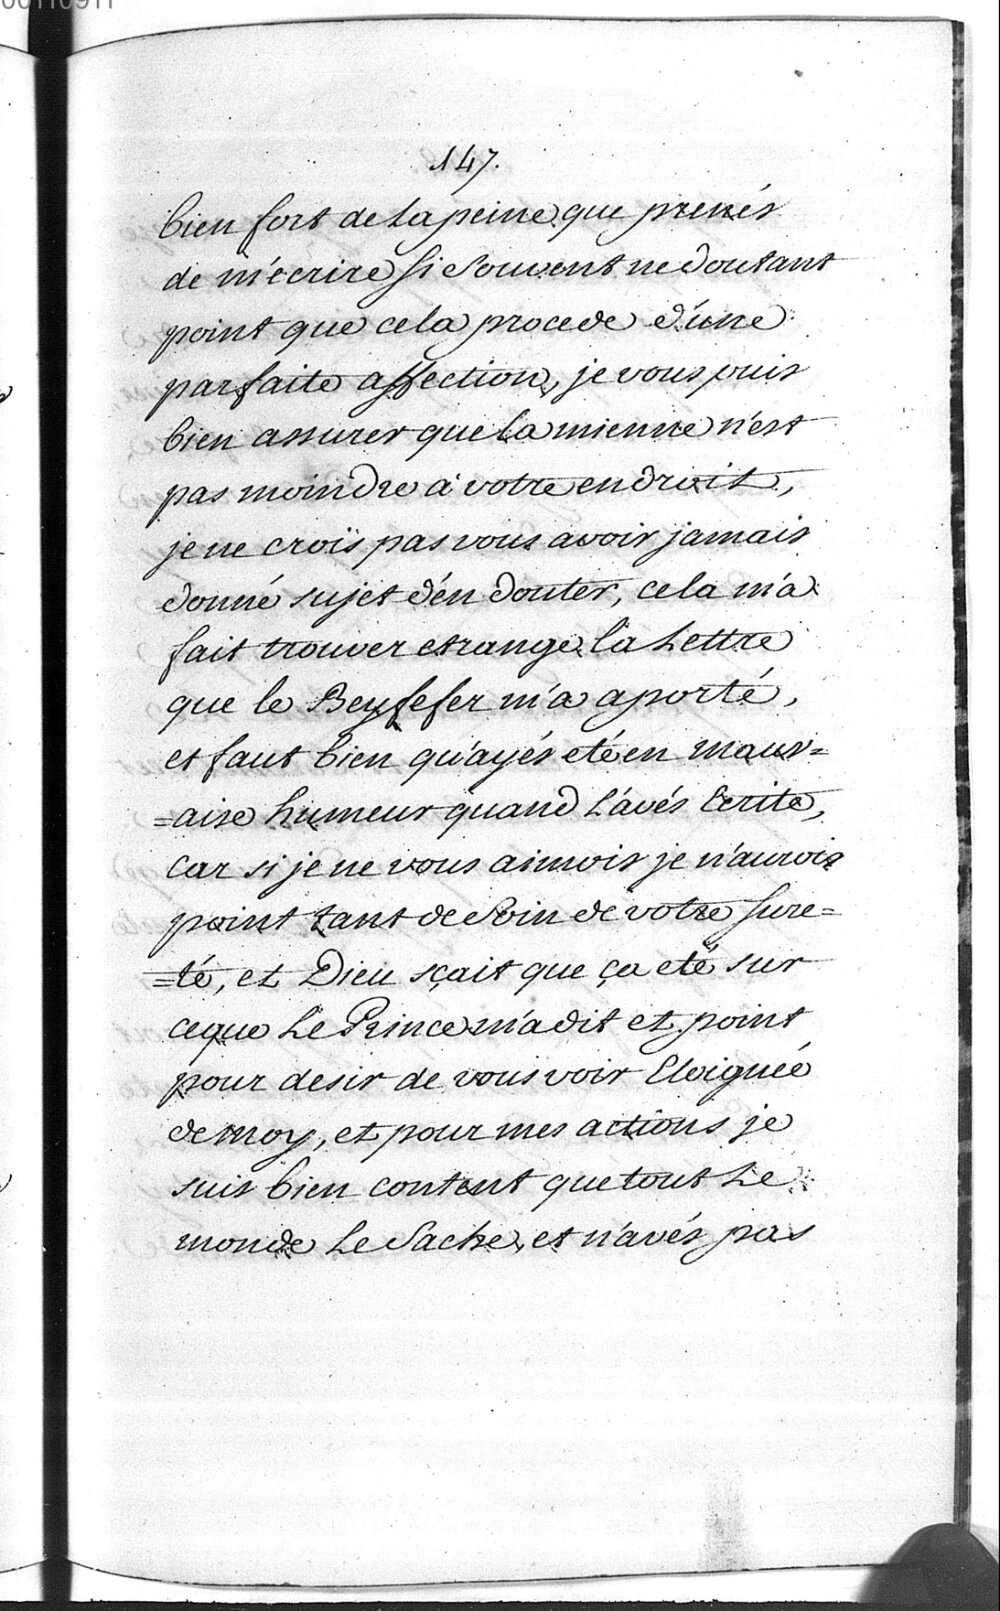 00110911
147.
bien fort de La peine que prenés
de m'ecrire si Souvent ne doutant
point que cela procede d'une
parfaite affection, je vous puis
bien assurer que la mienne n'est
pas moindre à votre endroit,
je ne croïs pas vous avoir jamais
donné sujet d'en douter, cela m'a
fait trouver etrange la Lettre
que le Beyfefer m'a aporté,
et faut bien qu'ayés eté en mauv=
=aise humeur quand L'avés Ecrite,
car si je ne vous aimois je n'aurois
point tant de Soin de votre sure=
=té, et Dieu sçait que ça eté sur
ceque Le Prince m'a dit et point
pour desir de vous voir Eloignée
de moy, et pour mes actions je
suis bien content que tout Le
monde Le Sache, et n'avés pas